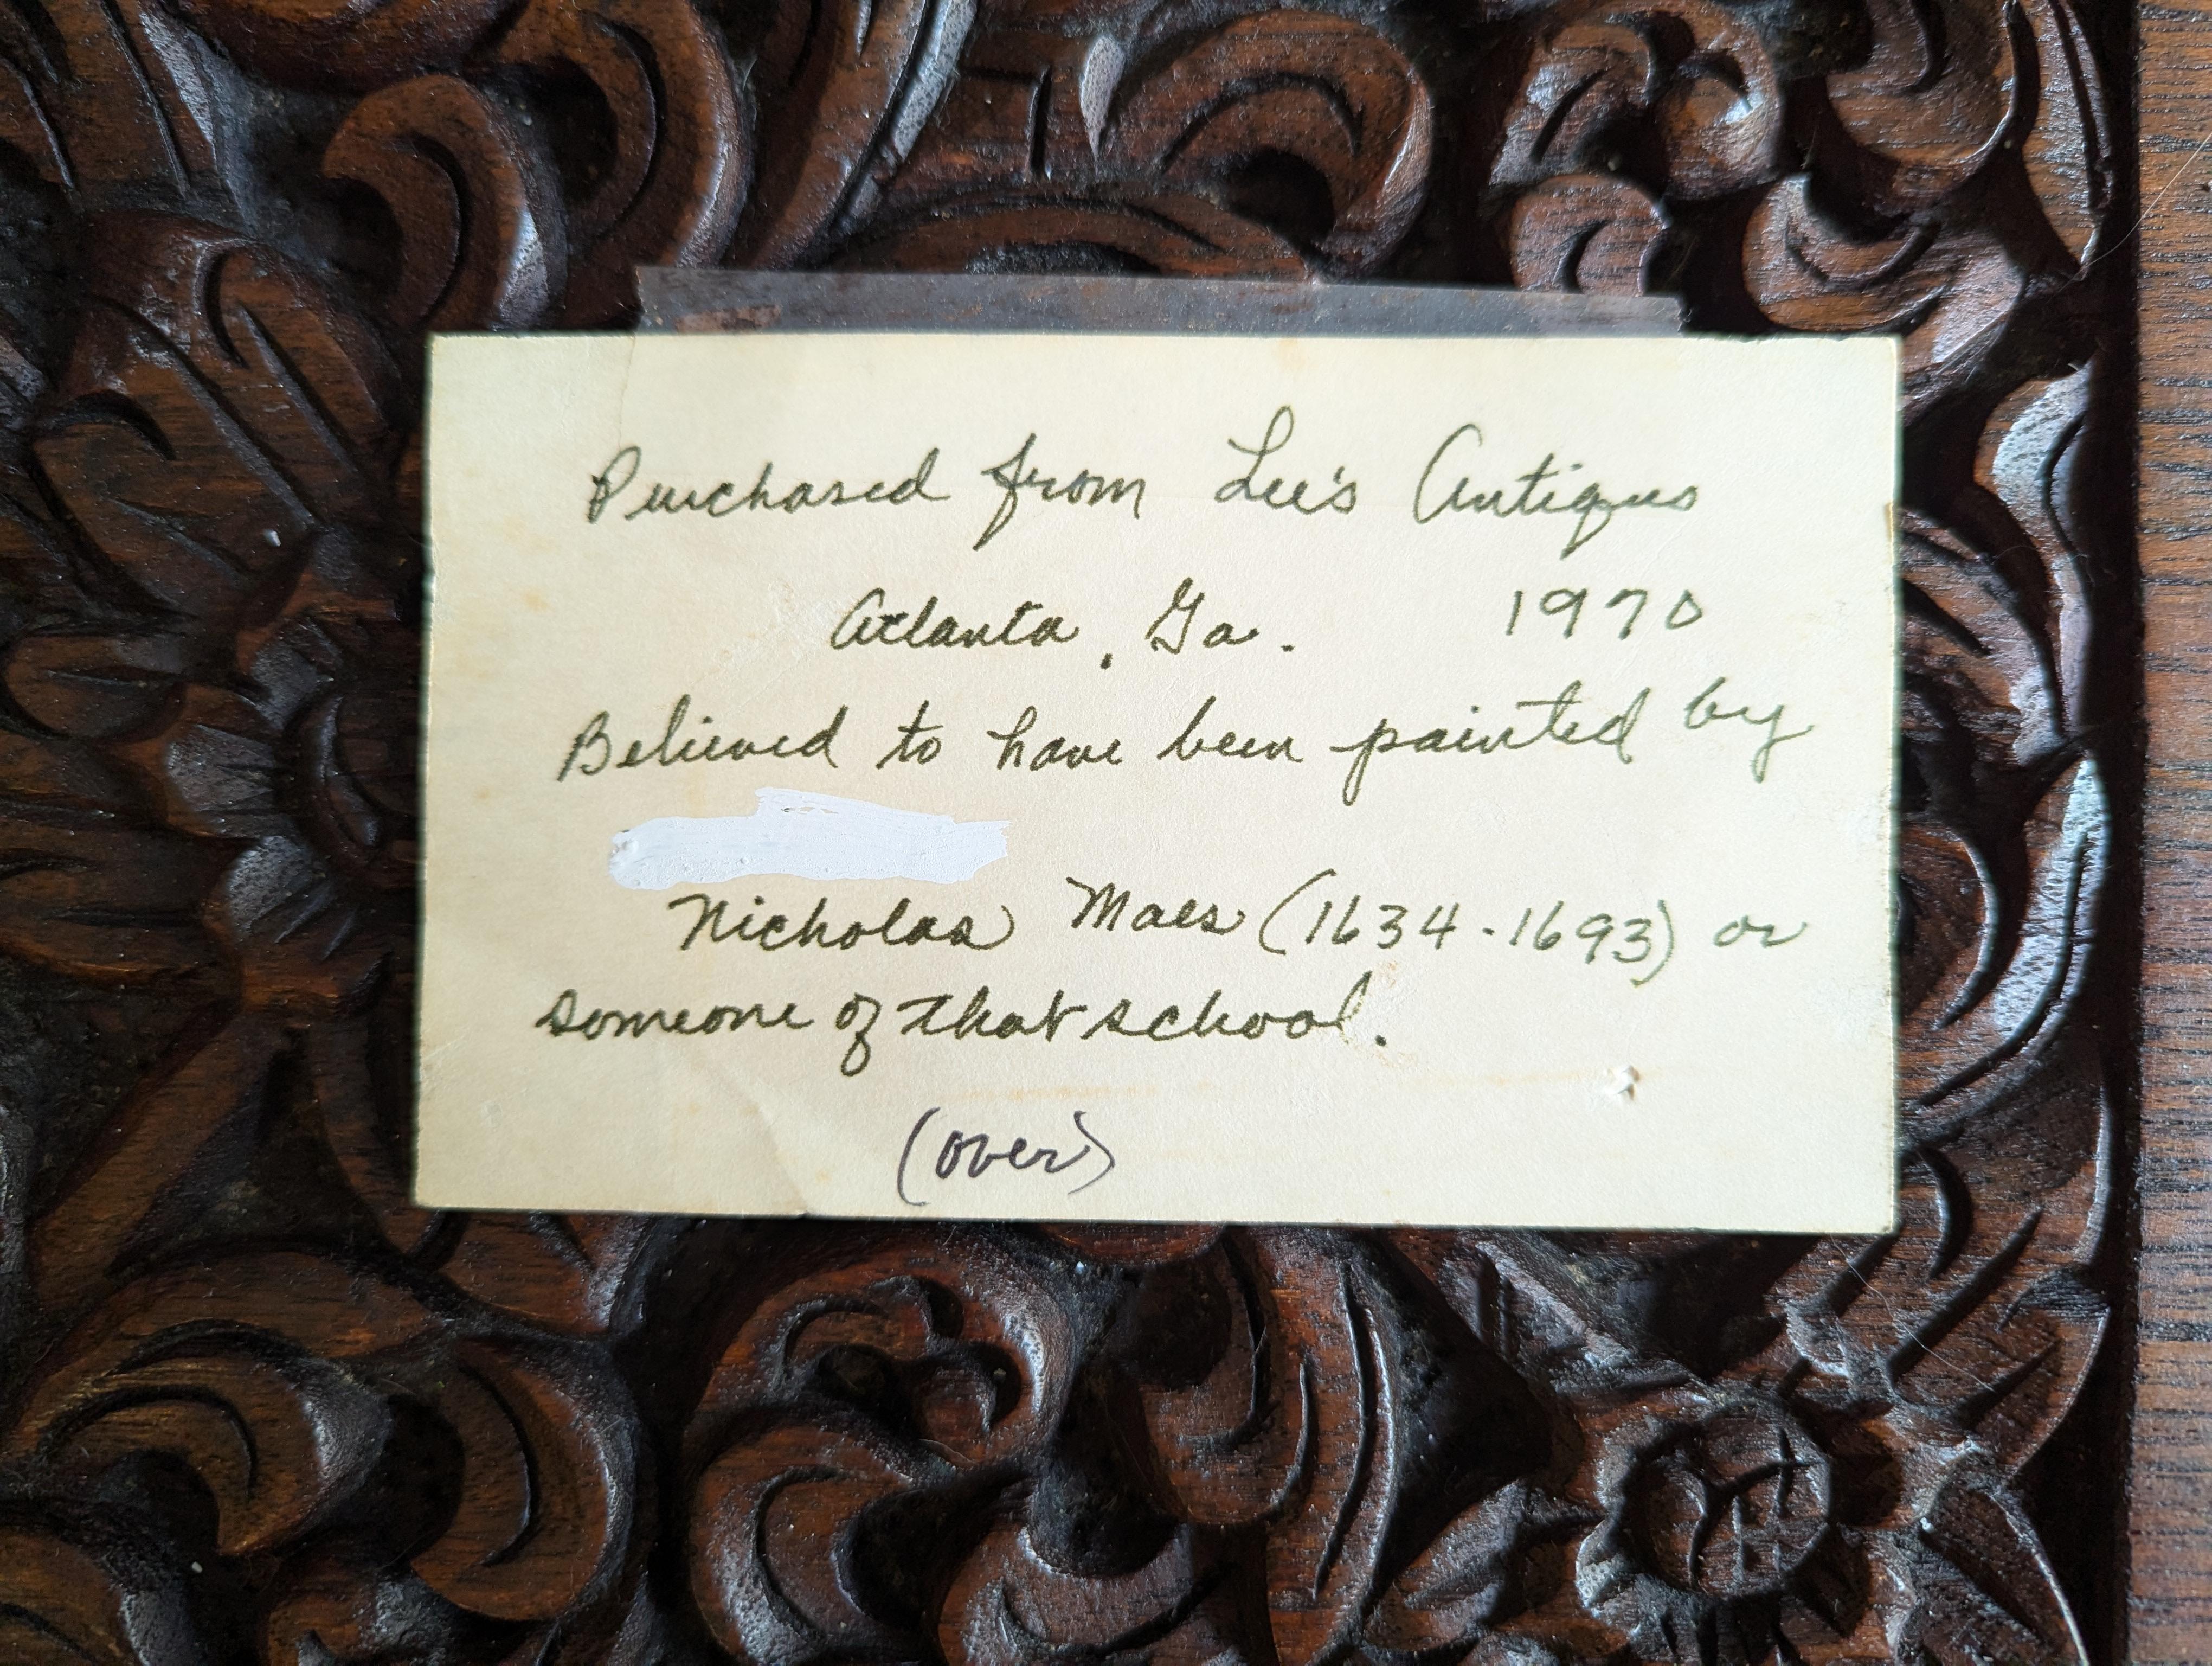 Purchased from Lee's Antiques
Atlanta, Ga. 1970
Believed to have been painted by
Nicholas Maes (1634-1693) or
someone of that school.
(over)